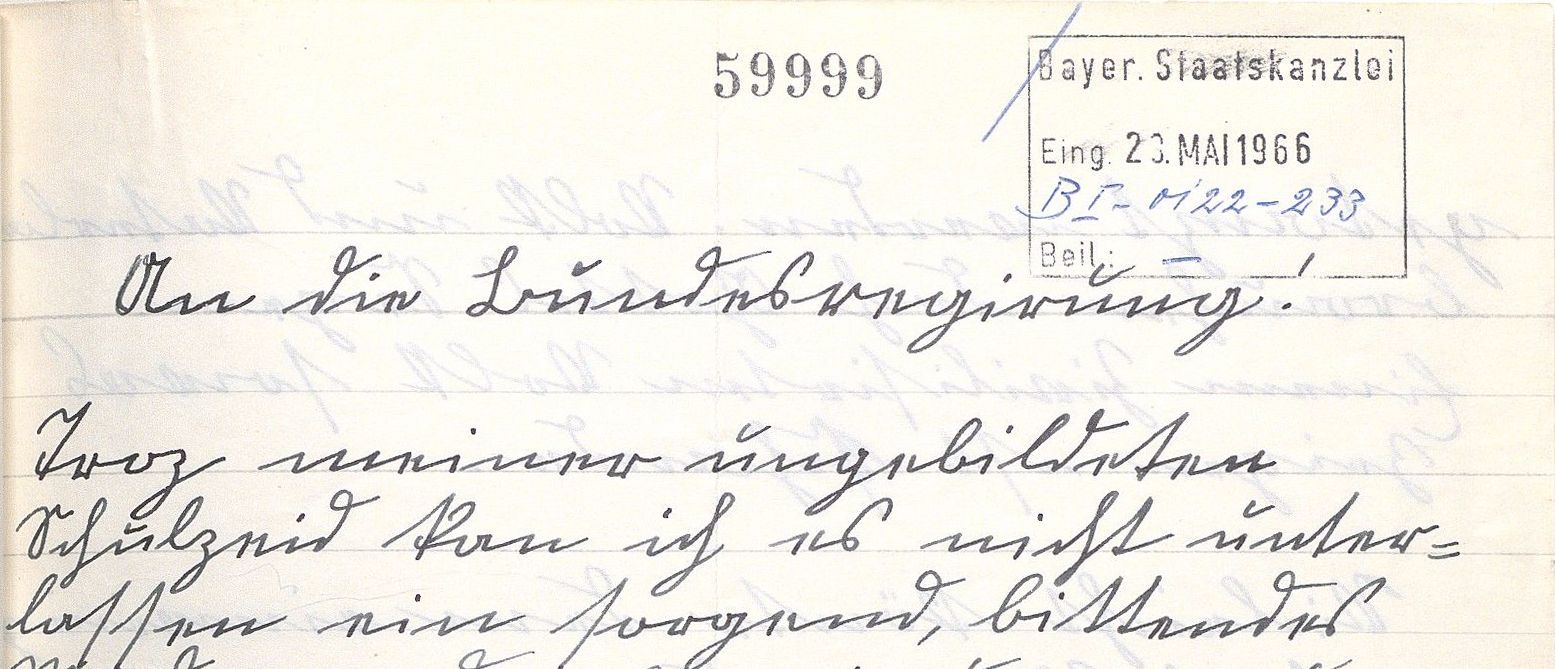 59999
Bayer. Staatskanzlei
Eing. 23. MAI 1966
BI-
-233
Beil.: —
An die Bundesregirung!
Troz meiner ungebildeten
Schulzeid kan ich es nicht unter=
lassen ein sorgend, bittendes